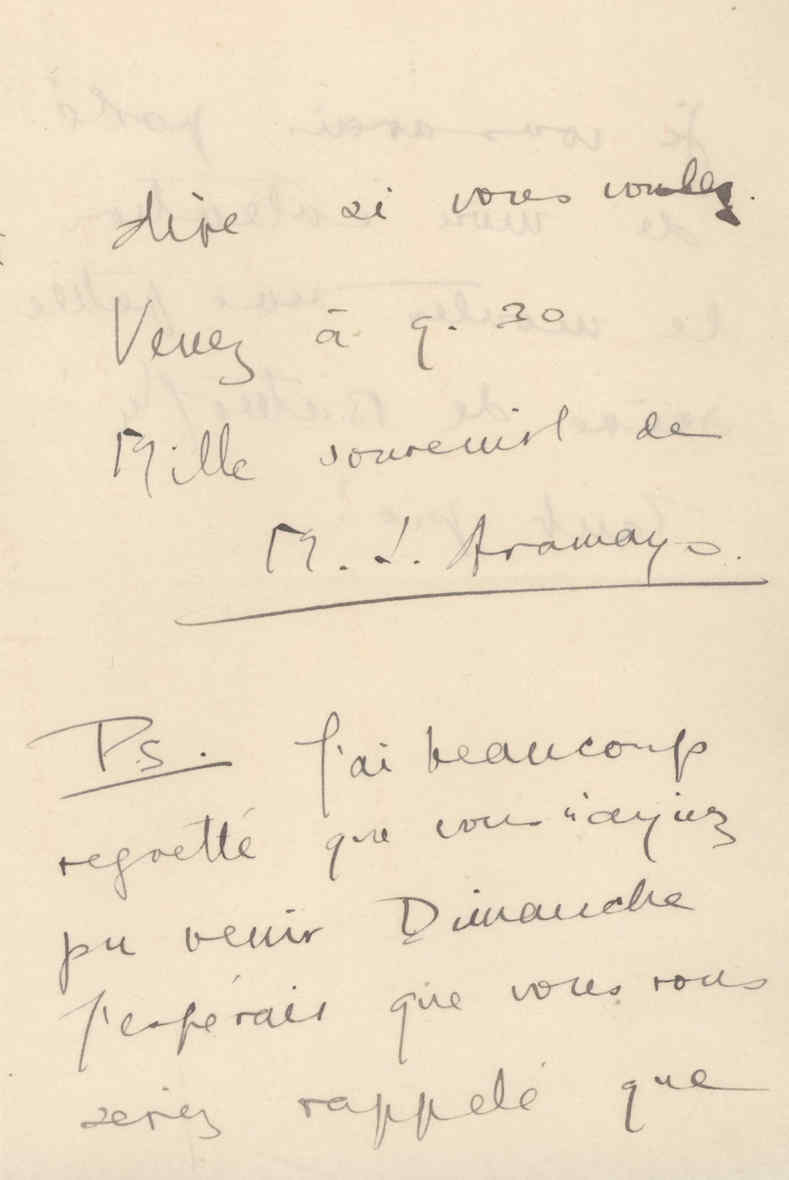 dire si vous voulez.
Venez à 9.30
Mille souvenirs de
M. L. Aramayo.
P.S. J'ai beaucoup
regretté que vous n'ayiez
pu venir Dimanche
J'espérais que vous vous
seriez rappelé que